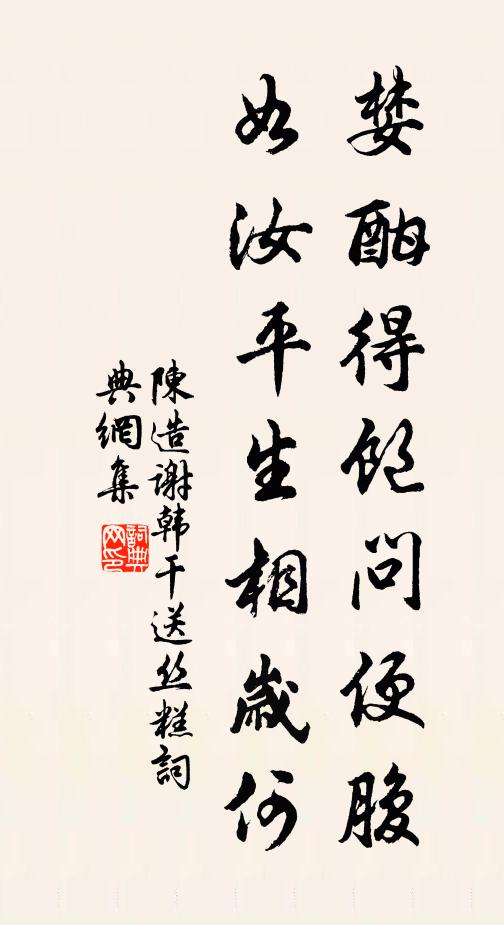 婪酣得飽问便腹
如汝平生相歲何
陳造谢韩干送丝糕詞
典網集
詞典
网印